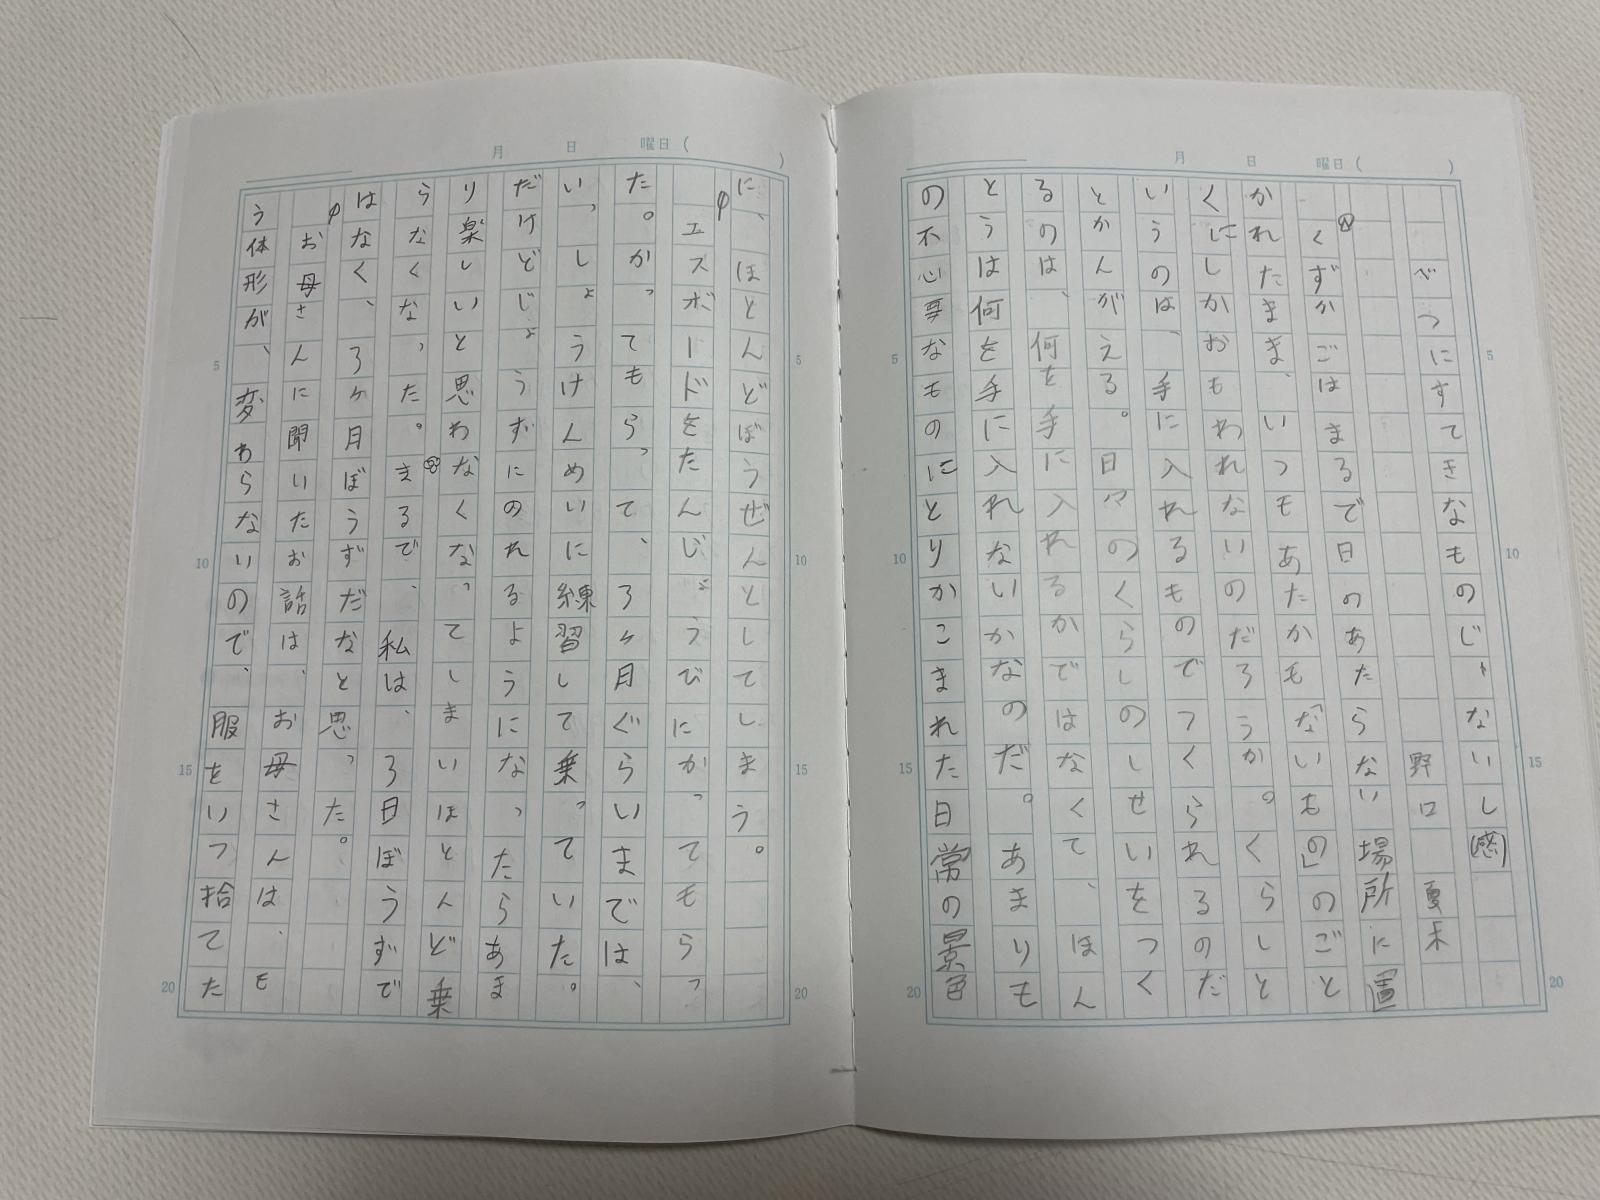 月 日 曜日( )
べつにすてきなものじゃないし(感)
野口 夏木
くずかごはまるで日のあたらない場所に置
かれたまま、いつもあたかも「ないもの」のごと
くにしかおもわれないのだろうか。くらしと
いうのは、手に入れるものでつくられるのだ
とかんがえる。日々のくらしのしせいをつく
るのは、何を手に入れるかではなくて、ほん
とうは何を手に入れないかなのだ。あまりも
の不必要なものにとりかこまれた日常の景色
5
10
15
20
月 日 曜日( )
に、ほとんどぼうぜんとしてしまう。
エスボードをたんじょうびにかってもらっ
た。かってもらって、3ヶ月ぐらいまでは、
いっしょうけんめいに練習して乗っていた。
だけどじょうずにのれるようになったらあま
り楽しいと思わなくなってしまいほとんど乗
らなくなった。まるで、私は、3日ぼうずで
はなく、3ヶ月ぼうずだなと思った。
お母さんに聞いたお話は、お母さんは、も
う体形が、変わらないので、服をいつ捨てた
5
10
15
20